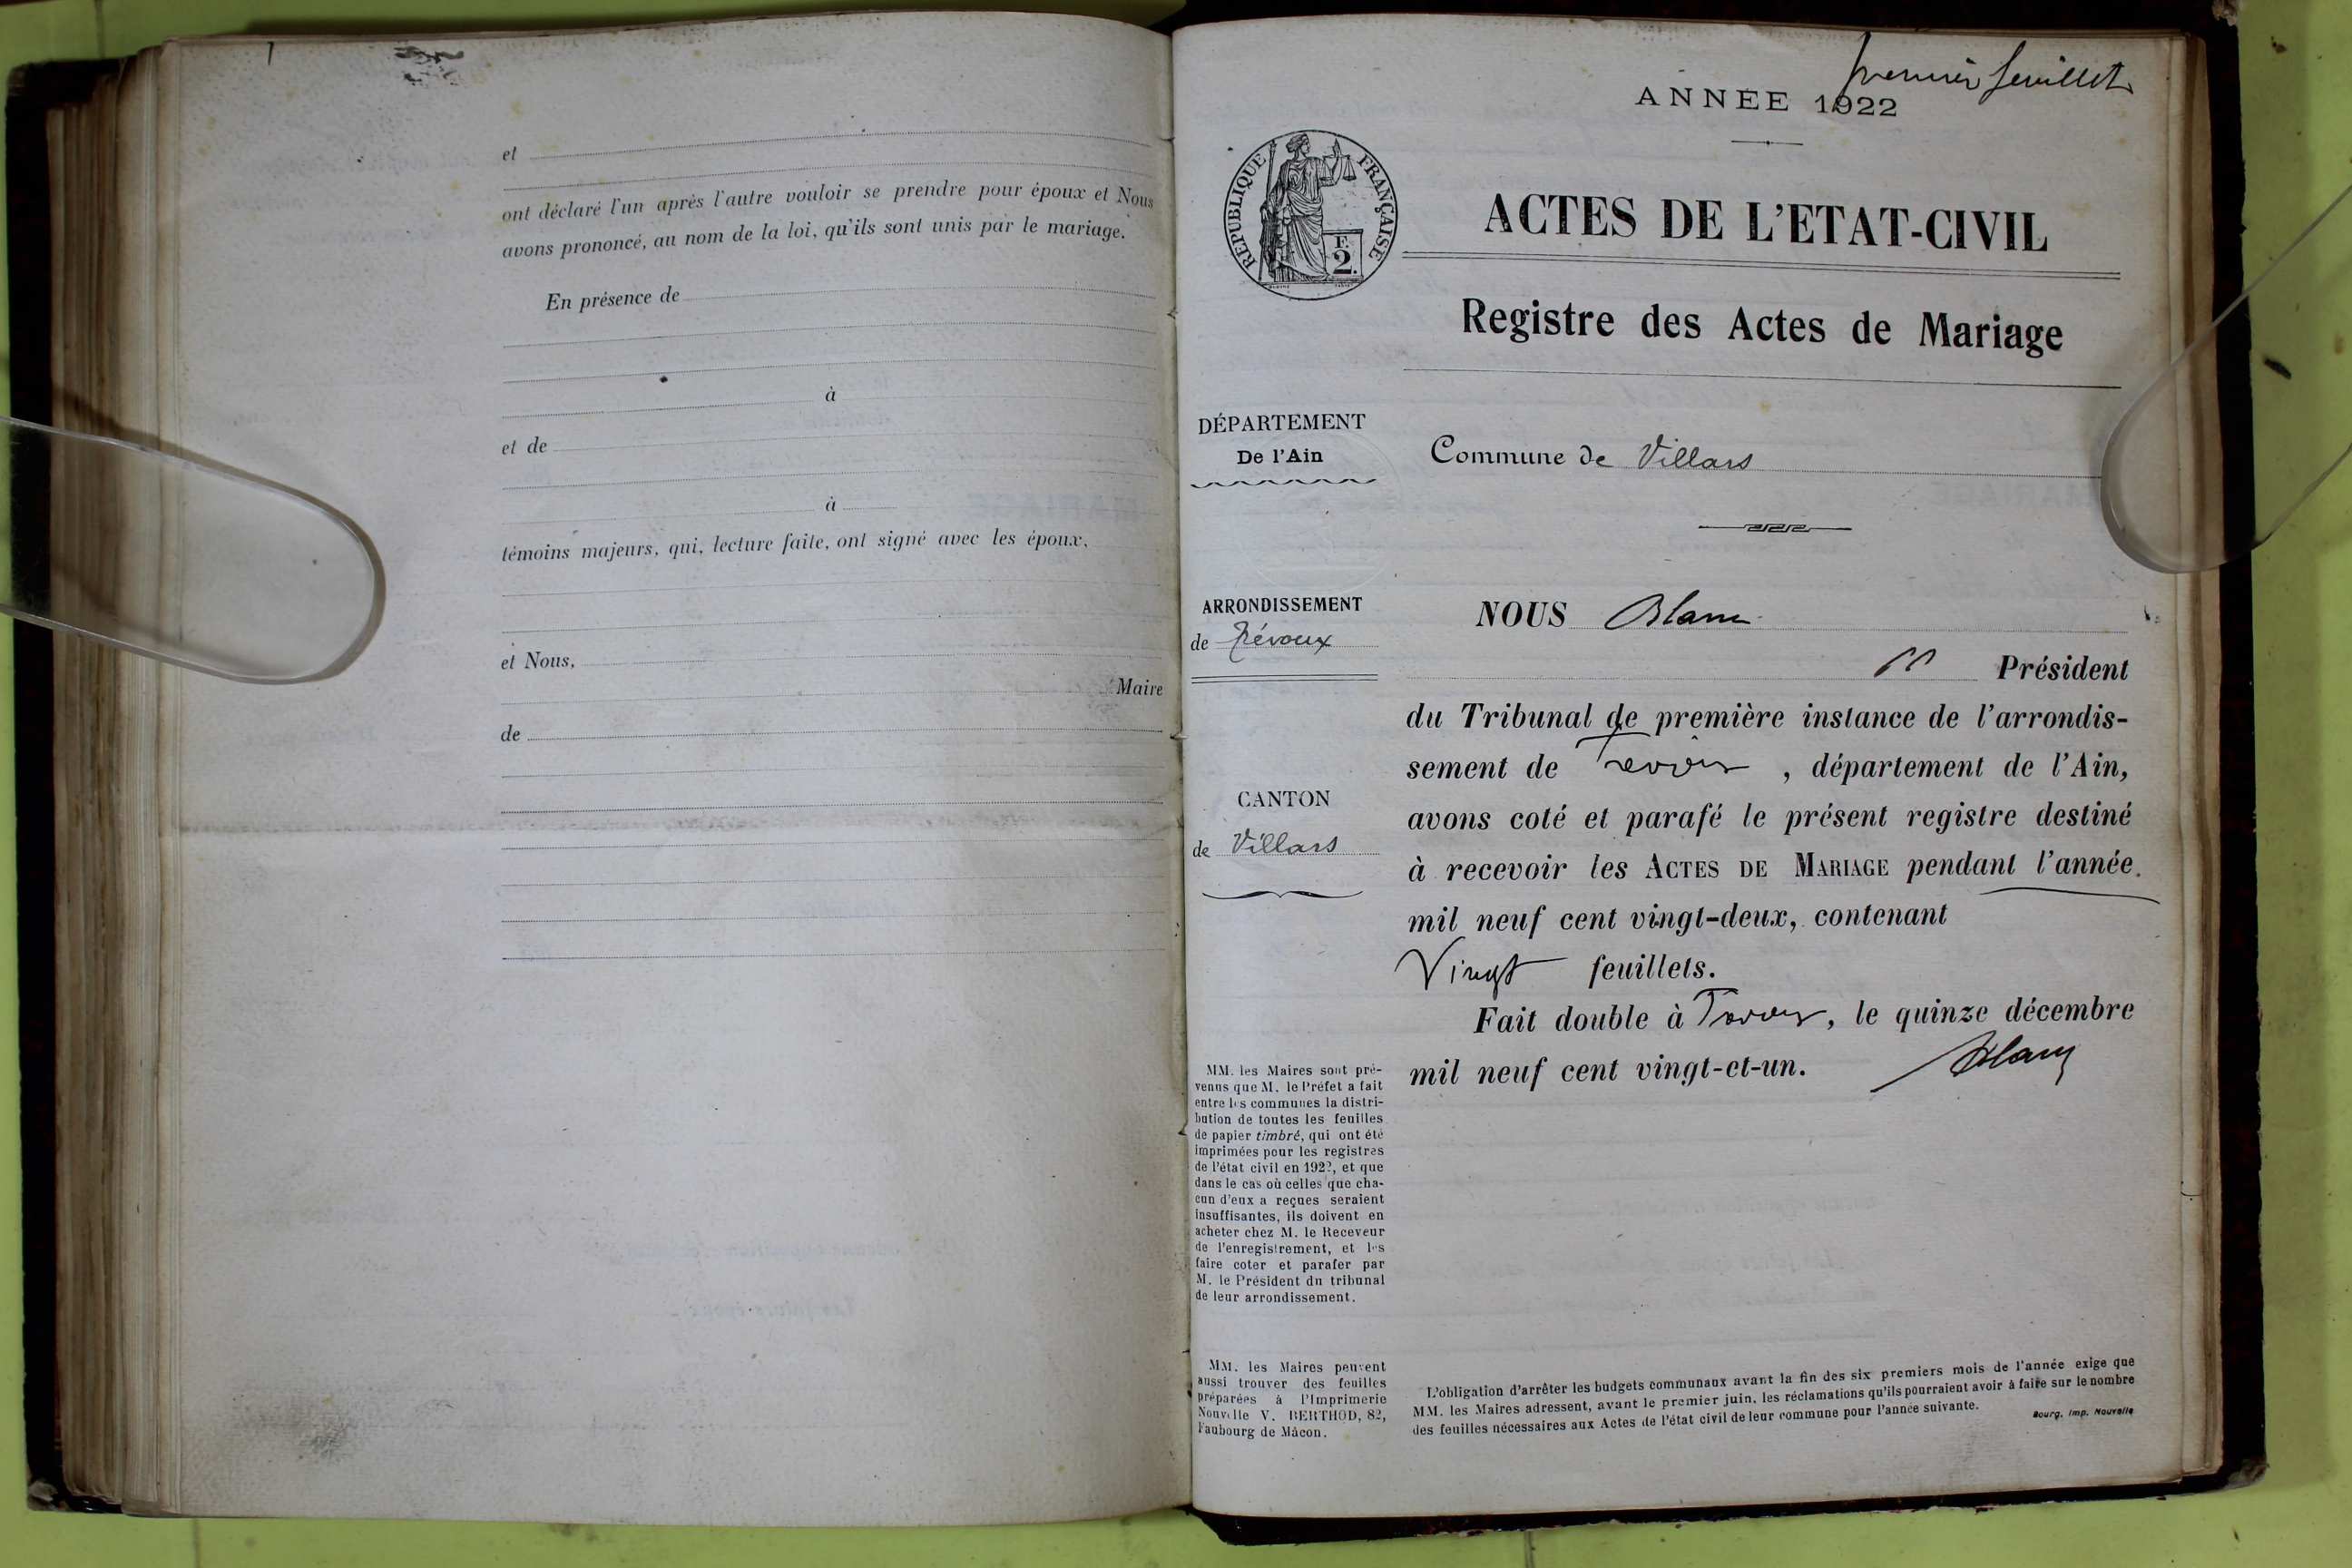 et
ont déclaré l'un après l'autre vouloir se prendre pour époux et Nous
avons prononcé, au nom de la loi, qu'ils sont unis par le mariage.
En présence de
à
et de
à
témoins majeurs, qui, lecture faite, ont signé avec les époux,
et Nous,
Maire
de
premier feuillet
ANNÉE 1922
RÉPUBLIQUE FRANÇAISE
F.
2.
ACTES DE L'ETAT-CIVIL
Registre des Actes de Mariage
DÉPARTEMENT
De l'Ain
Commune de Villars
ARRONDISSEMENT
de Trévoux
CANTON
de Villars
NOUS Blanc
Président
du Tribunal de première instance de l'arrondis-
sement de Trévoux, département de l'Ain,
avons coté et parafé le présent registre destiné
à recevoir les ACTES DE MARIAGE pendant l'année
mil neuf cent vingt-deux, contenant
Vingt feuillets.
Fait double à Trévoux, le quinze décembre
mil neuf cent vingt-et-un.
Blanc
MM. les Maires sont pré-
venus que M. le Préfet a fait
entre les communes la distri-
bution de toutes les feuilles
de papier timbré, qui ont été
imprimées pour les registres
de l'état civil en 1922, et que
dans le cas où celles que cha-
cun d'eux a reçues seraient
insuffisantes, ils doivent en
acheter chez M. le Receveur
de l'enregistrement, et les
faire coter et parafer par
M. le Président du tribunal
de leur arrondissement.
MM. les Maires peuvent
aussi trouver des feuilles
préparées à l'Imprimerie
Nouvelle V. BERTHOD, 82,
Faubourg de Mâcon.
L'obligation d'arrêter les budgets communaux avant la fin des six premiers mois de l'année exige que
MM. les Maires adressent, avant le premier juin, les réclamations qu'ils pourraient avoir à faire sur le nombre
des feuilles nécessaires aux Actes de l'état civil de leur commune pour l'année suivante.
Bourg, Imp. Nouvelle